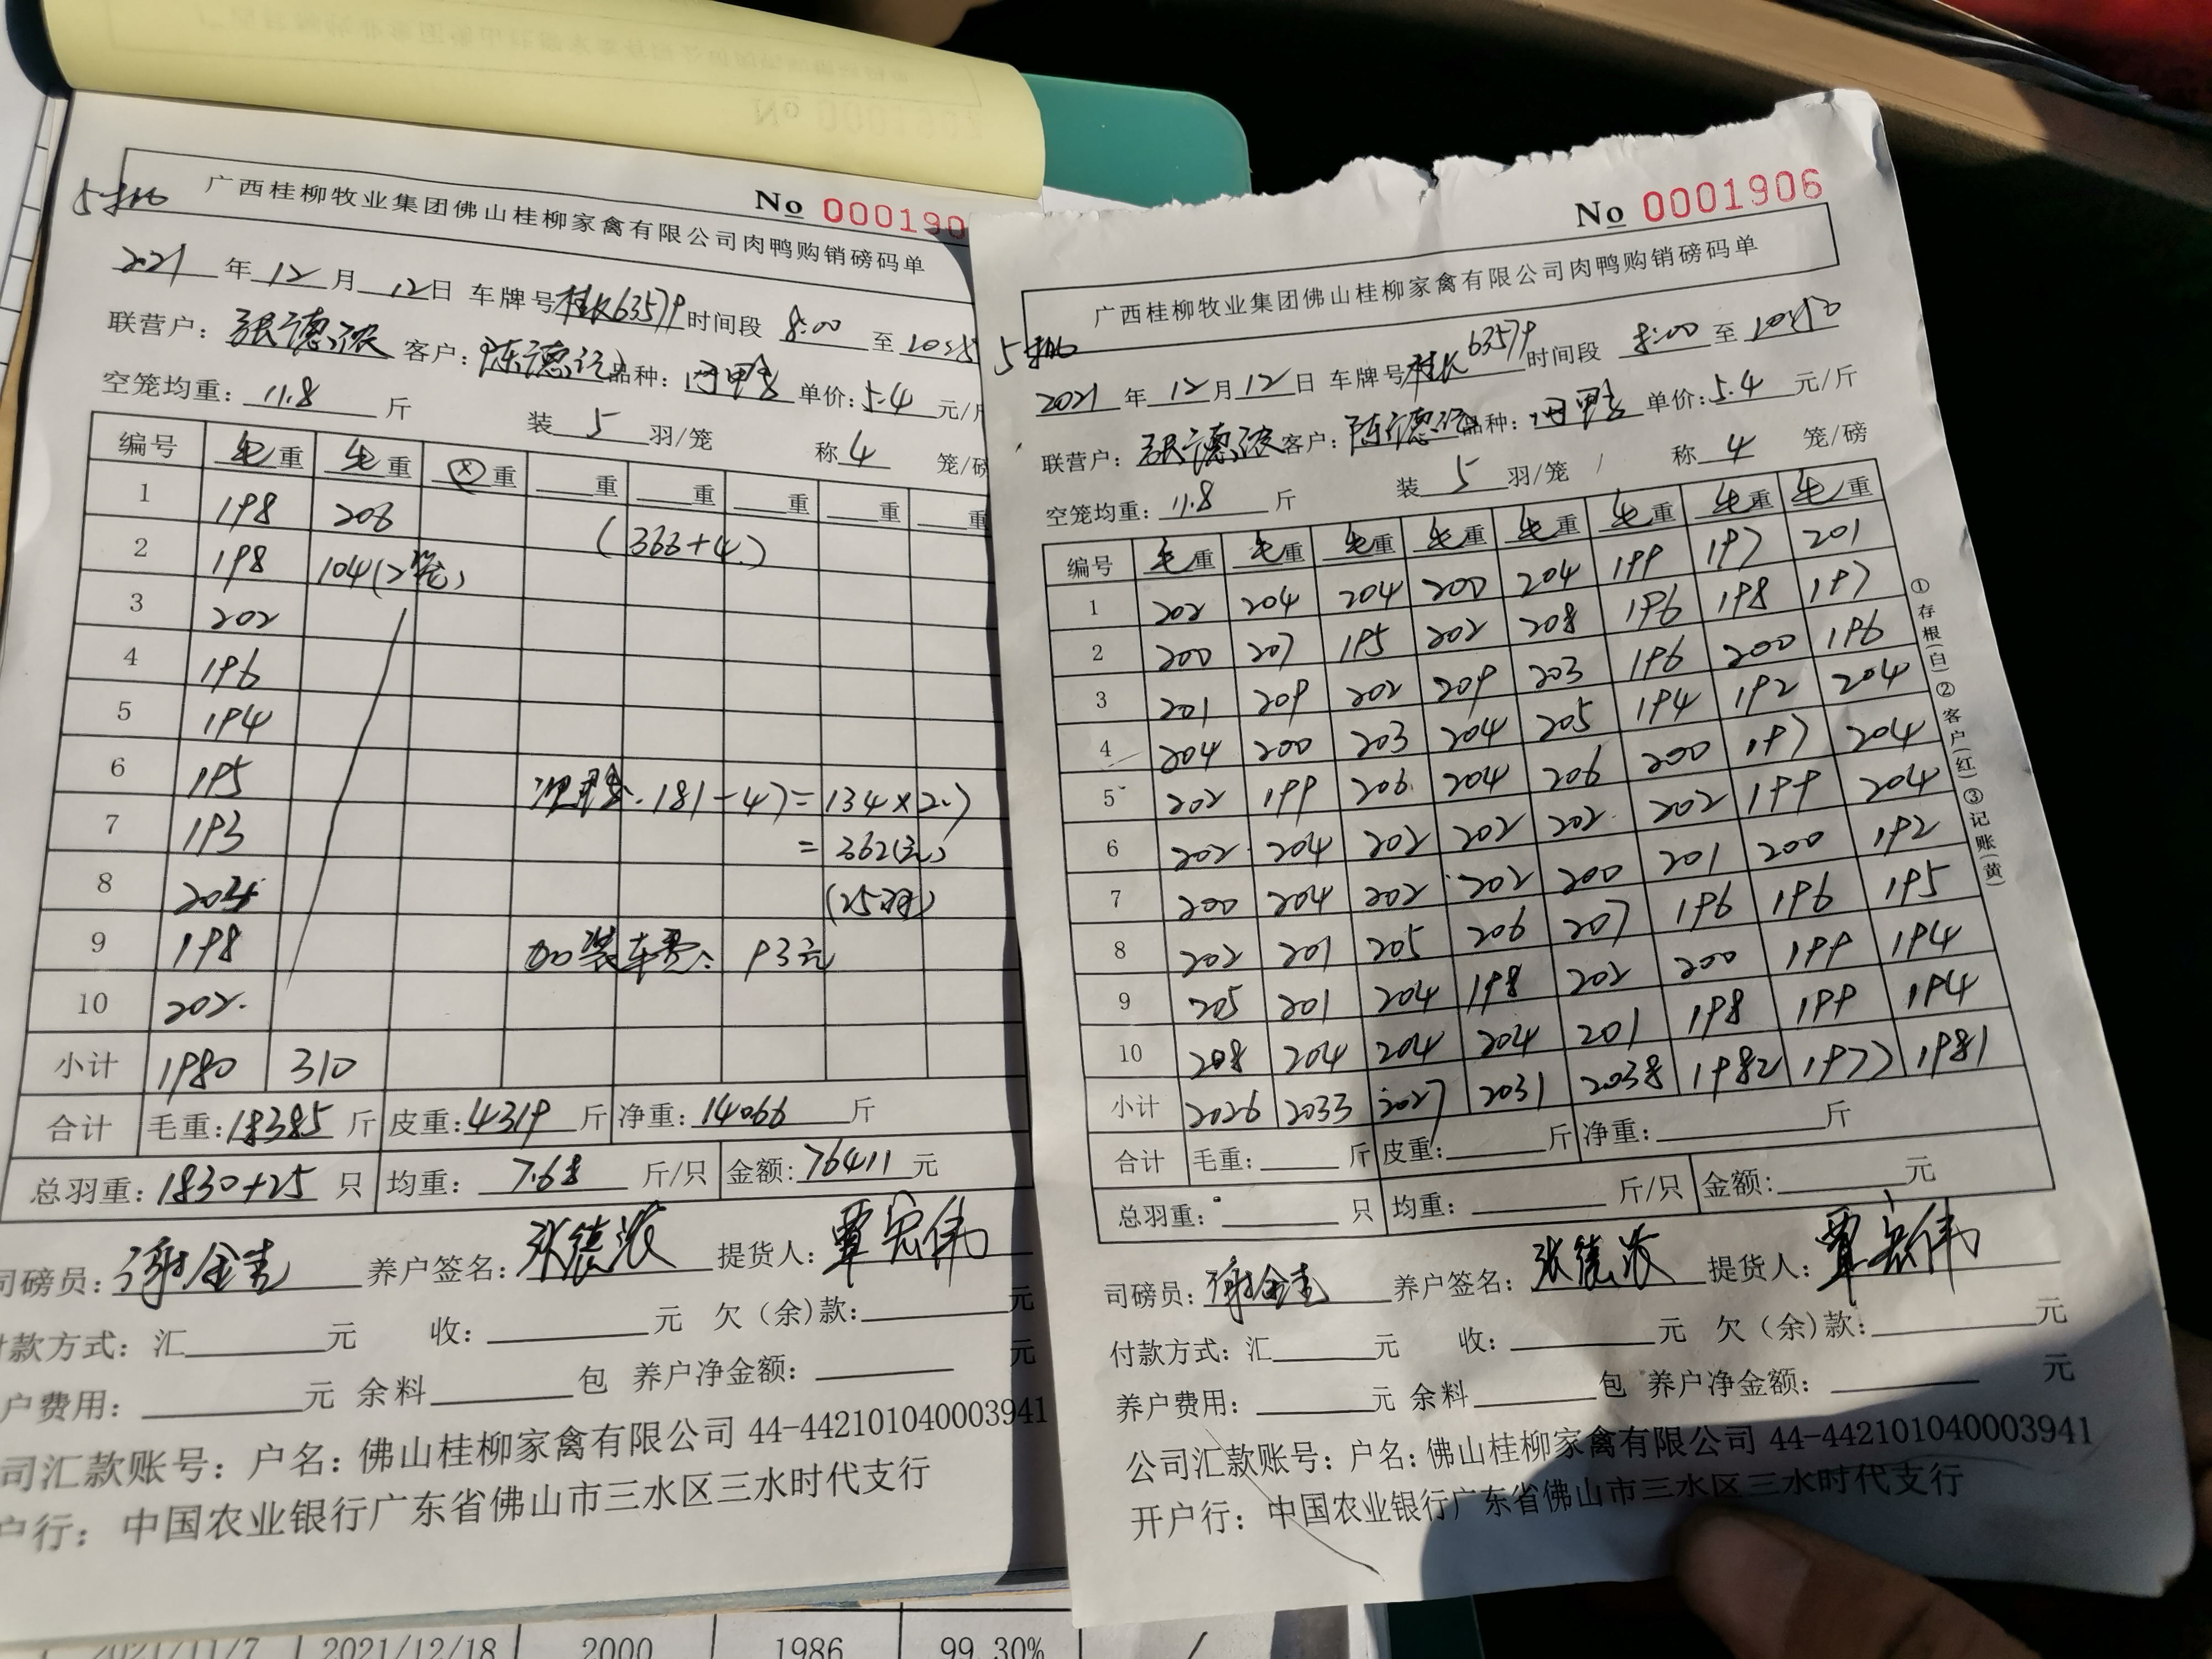 No 000190
广西桂柳牧业集团佛山桂柳家禽有限公司肉鸭购销磅码单
2021年12月12日 车牌号 63579 时间段 8:00 至
联营户：张德浓 客户：陈德 品种： 单价：5.4 元/
空笼均重：11.8 斤 装 5 羽/笼 称 4 笼/磅
编号 毛重 毛重 重 重 重 重 重 重
1 198 206 (366+4.)
2 198 104(2笼)
3 202
4 196
5 194
6 195 .181-47=134×2.7
7 193 =362(元)
8 204 (25羽)
9 198 加装车费：93元
10 202.
小计 1980 310
合计 毛重：18385 斤 皮重：4319 斤 净重：14066 斤
总羽重：1830+25 只 均重：7.68 斤/只 金额：76411 元
司磅员：谢金 养户签名：张德浓 提货人：覃宏伟
付款方式：汇 元 收： 元 欠（余)款： 元
户费用： 元 余料 包 养户净金额： 元
司汇款账号：户名：佛山桂柳家禽有限公司 44-442101040003941
户行：中国农业银行广东省佛山市三水区三水时代支行
2021/11/7 2021/12/18 2000 1986 99.30% /
No 0001906
广西桂柳牧业集团佛山桂柳家禽有限公司肉鸭购销磅码单
2021年12月12日 车牌号 63579 时间段 8:00 至
联营户：张德浓 客户：陈德 品种： 单价：5.4 元/斤
空笼均重：11.8 斤 装 5 羽/笼 称 4 笼/磅
编号 毛重 毛重 毛重 毛重 毛重 毛重 毛重 毛重
1 202 204 204 200 204 199 197 201
2 200 207 195 202 208 196 198 197
3 201 209 202 209 203 196 200 196
4 204 200 203 204 205 194 192 204
5 202 199 206 204 206 200 197 204
6 202 204 202 202 202 202 199 204
7 200 204 202 202 200 201 200 192
8 202 201 205 206 207 196 196 195
9 205 201 204 198 202 200 199 194
10 208 204 204 204 201 198 199 194
小计 2026 2033 2027 2031 2038 1982 1977 1981
合计 毛重： 斤 皮重： 斤 净重： 斤
总羽重： 只 均重： 斤/只 金额： 元
司磅员：谢金 养户签名：张德浓 提货人：覃宏伟
付款方式：汇 元 收： 元 欠（余)款： 元
养户费用： 元 余料 包 养户净金额： 元
公司汇款账号：户名：佛山桂柳家禽有限公司 44-442101040003941
开户行：中国农业银行广东省佛山市三水区三水时代支行
①存根(白)②客户(红)③记账(黄)